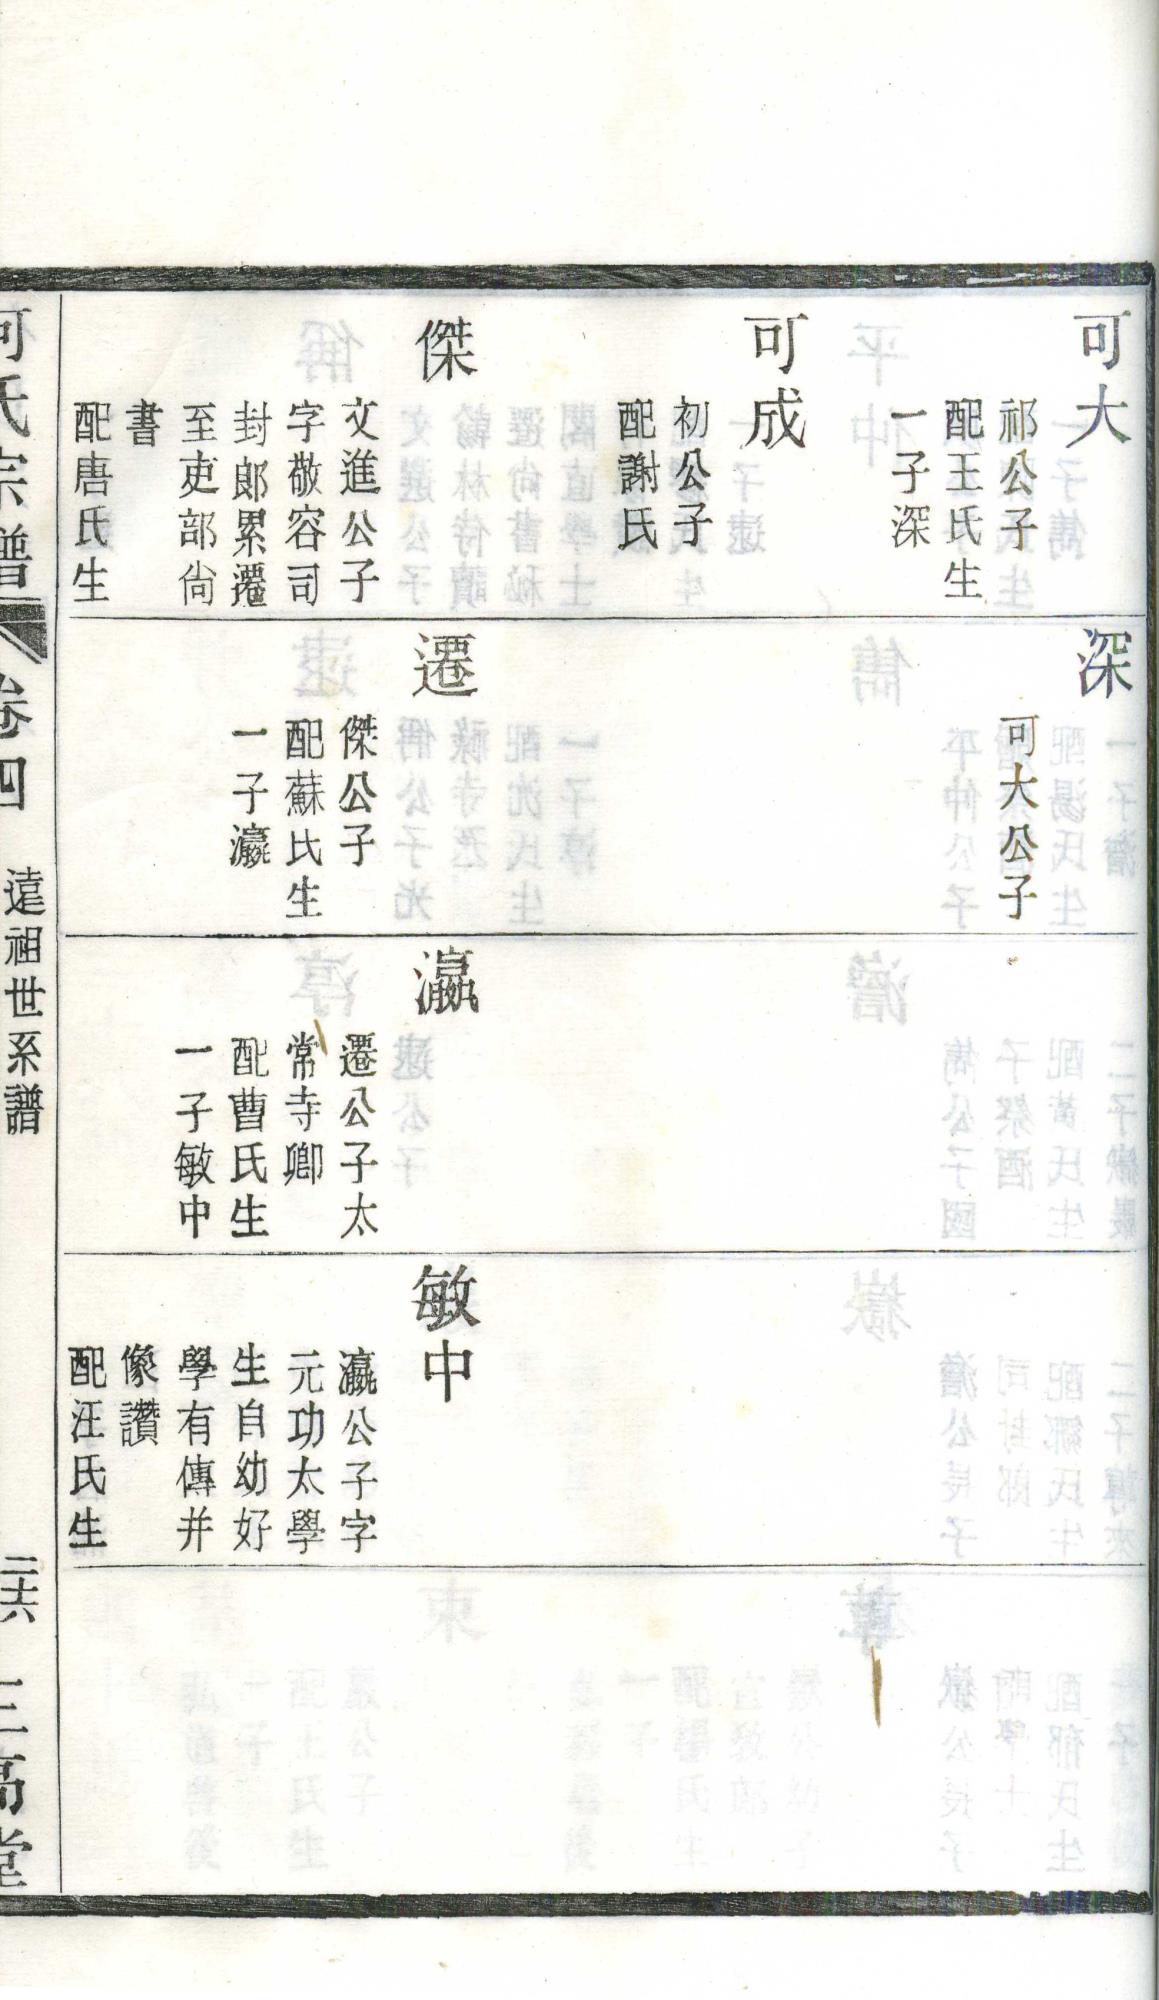 可大
祁公子
配王氏生
一子深
可成
初公子
配謝氏
傑
文進公子
字敬容司
封郎累遷
至吏部尙
書
配唐氏生
深
可大公子
遷
傑公子
配蘇氏生
一子瀛
瀛
遷公子太
常寺卿
配曹氏生
一子敏中
敏中
瀛公子字
元功太學
生自幼好
學有傳并
像讚
配汪氏生
何氏宗譜 卷四 遠祖世系譜 二六 三高堂